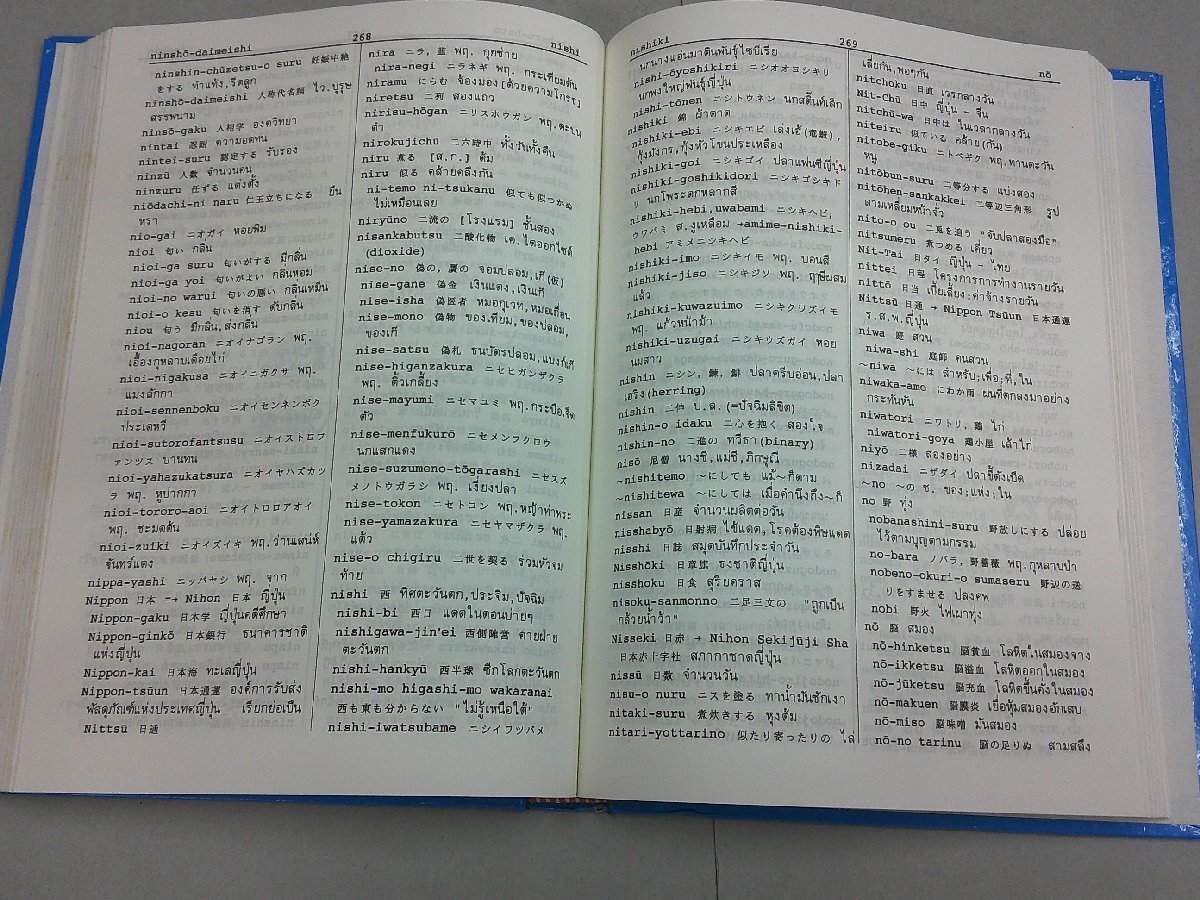 ninshō-daimeishi 268 nishi
ninshin-chūzetsu-o suru 妊娠中絶
をする ทำแท้ง,รีดลูก
ninshō-daimeishi 人称代名詞 ไว.บุรุษ
สรรพนาม
ninsō-gaku 人相学 องควิทยา
nintai 忍耐 ความอดทน
nintei-suru 認定する รับรอง
ninzū 人数 จำนวนคน
ninzuru 任ずる แต่งตั้ง
niōdachi-ni naru 仁王立ちになる ยืน
หรา
nio-gai ニオガイ หอยพิม
nioi 匂い กลิ่น
nioi-ga suru 匂いがする มีกลิ่น
nioi-ga yoi 匂いがよい กลิ่นหอม
nioi-no warui 匂いの悪い กลิ่นเหม็น
nioi-o kesu 匂いを消す ดับกลิ่น
niou 匂う มีกลิ่น,ส่งกลิ่น
nioi-nagoran ニオイナゴラン พฤ.
เอื้องกุหลาบเดือยไก่
nioi-nigakusa ニオイニガクサ พฤ.
แมงลักคา
nioi-sennenboku ニオイセンネンボク
ประเดหวี
nioi-sutorofantsusu ニオイストロフ
ァンツス บานทน
nioi-yahazukatsura ニオイヤハズカツ
ラ พฤ. หูปากกา
nioi-tororo-aoi ニオイトロロアオイ
พฤ. ชะมดต้น
nioi-zuiki ニオイズイキ พฤ.ว่านเสน่ห์
จันทร์แดง
nippa-yashi ニッパヤシ พฤ. จาก
Nippon 日本 → Nihon 日本 ญี่ปุ่น
Nippon-gaku 日本学 ญี่ปุ่นคดีศึกษา
Nippon-ginkō 日本銀行 ธนาคารชาติ
แห่งญี่ปุ่น
Nippon-kai 日本海 ทะเลญี่ปุ่น
Nippon-tsūun 日本通運 องค์การรับส่ง
พัสดุภัณฑ์แห่งประเทศญี่ปุ่น เรียกย่อเป็น
Nittsū 日通
nira ニラ, 韮 พฤ. กุยช่าย
nira-negi ニラネギ พฤ. กระเทียมต้น
niramu にらむ จ้องมอง[ด้วยความโกรธ]
niretsu 二列 สองแถว
nirisu-hōgan ニリスホウガン พฤ.
ดำ
nirokujichū 二六時中 ทั้งวันทั้งคืน
niru 煮る [ส.ก.] ต้ม
niru 似る คล้ายคลึงกัน
ni-temo ni-tsukanu 似ても似つかぬ
ไม่เหมือนเลย
niryūno 二流の [โรงแรม] ชั้นสอง
nisankabutsu 二酸化物 เค.ไดออกไซด์
(dioxide)
nise-no 偽の, 贋の จอมปลอม,เก๊(仮)
nise-gane 偽金 เงินแดง,เงินเก๊
nise-isha 偽医者 หมอกุเวท,หมอเถื่อน
nise-mono 偽物 ของ.เทียม,ของปลอม,
ของเก๊
nise-satsu 偽札 ธนบัตรปลอม,แบงก์เก๊
nise-higanzakura ニセヒガンザクラ
พฤ. ติ้วเกลี้ยง
nise-mayumi ニセマユミ พฤ.กระบือ,รีด
ตัว
nise-menfukurō ニセメンフクロウ
นกแสกแดง
nise-suzumeno-tōgarashi ニセスズ
メノトウガラシ พฤ. เงี่ยงปลา
nise-tokon ニセトコン พฤ.หญ้าท่าพระ
nise-yamazakura ニセヤマザクラ พฤ.
แต้ว
nise-o chigiru 二世を契る ร่วมหัวจม
ท้าย
nishi 西 ทิศตะวันตก,ประจิม,ปัจฉิม
nishi-bi 西日 แดดในตอนบ่ายๆ
nishigawa-jin'ei 西側陣営 ค่ายฝ่าย
ตะวันตก
nishi-hankyū 西半球 ซีกโลกตะวันตก
nishi-mo higashi-mo wakaranai
西も東も分からない "ไม่รู้เหนือใต้"
nishi-iwatsubame ニシイワツバメ
nishiki 269 nō
นกนางแอ่นมาตินพันธุ์ไซบีเรีย
nishi-ōyoshikiri ニシオオヨシキリ
นกพงใหญ่พันธุ์ญี่ปุ่น
nishi-tōnen ニシトウネン นกสติ๊นท์เล็ก
nishiki 錦 ผ้าตาด
nishiki-ebi ニシキエビ เล่งเฮ้(竜蝦),
กุ้งมังกร,กุ้งหัวโขนประเหลือง
nishiki-goi ニシキゴイ ปลาแฟนซีญี่ปุ่น
nishiki-goshikidori ニシキゴシキド
リ นกโพระดกหลากสี
nishiki-hebi,uwabami ニシキヘビ,
ウワバミ ส.งูเหลือม →amime-nishiki-
hebi アミメニシキヘビ
nishiki-imo ニシキイモ พฤ. บอนสี
nishiki-jiso ニシキジソ พฤ. ฤาษีผสม
แล้ว
nishiki-kuwazuimo ニシキクワズイモ
พฤ. แก้วหน้าม้า
nishiki-uzugai ニシキウズガイ หอย
นมสาว
nishin ニシン, 鰊, 鯡 ปลาครีบอ่อน,ปลา
เฮริง(herring)
nishin 二伸 ป.ล.(=ปัจฉิมลิขิต)
nishin-o idaku 二心を抱く สองใจ
nishin-no 二進の ทวีธา(binary)
nisō 尼僧 นางชี,แม่ชี,ภิกษุณี
~nishitemo ~にしても แม้~ก็ตาม
~nishitewa ~にしては เมื่อคำนึงถึง~ก็
nissan 日産 จำนวนผลิตต่อวัน
nisshabyō 日射病 ไข้แดด,โรคต้องพิษแดด
nisshi 日誌 สมุดบันทึกประจำวัน
Nisshōki 日章旗 ธงชาติญี่ปุ่น
nisshoku 日食 สุริยคราส
nisoku-sanmonno 二足三文の "ถูกเป็น
กล้วยน้ำว้า"
Nisseki 日赤 → Nihon Sekijūji Sha
日本赤十字社 สภากาชาดญี่ปุ่น
nissū 日数 จำนวนวัน
nisu-o nuru ニスを塗る ทาน้ำมันชักเงา
nitaki-suru 煮炊きする หุงต้ม
nitari-yottarino 似たり寄ったりの ไล่
เลี่ยกัน,พอๆกัน
nitchoku 日直 เวรกลางวัน
Nit-Chū 日中 ญี่ปุ่น - จีน
nitchū-wa 日中は ในเวลากลางวัน
niteiru 似ている คล้าย(กัน)
nitobe-giku ニトベギク พฤ.ทานตะวัน
หนู
nitōbun-suru 二等分する แบ่งสอง
nitōhen-sankakkei 二等辺三角形 รูป
สามเหลี่ยมหน้าจั่ว
nito-o ou 二兎を追う "จับปลาสองมือ"
nitsumeru 煮つめる เคี่ยว
Nit-Tai 日タイ ญี่ปุ่น - ไทย
nittei 日程 โครงการการทำงานรายวัน
nittō 日当 เบี้ยเลี้ยง;ค่าจ้างรายวัน
Nittsū 日通 → Nippon Tsūun 日本通運
ร.ส.พ.ญี่ปุ่น
niwa 庭 สวน
niwa-shi 庭師 คนสวน
~niwa ~には สำหรับ;เพื่อ;ที่,ใน
niwaka-ame にわか雨 ฝนที่ตกลงมาอย่าง
กระทันหัน
niwatori ニワトリ, 鶏 ไก่
niwatori-goya 鶏小屋 เล้าไก่
niyō 二様 สองอย่าง
nizadai ニザダイ ปลาขี้ตังเบ็ด
~no ~の ช. ของ;แห่ง;ใน
no 野 ทุ่ง
nobanashini-suru 野放しにする ปล่อย
ไว้ตามบุญตามกรรม
no-bara ノバラ, 野薔薇 พฤ.กุหลาบป่า
nobeno-okuri-o sumaseru 野辺の送
りをすませる ปลงศพ
nobi 野火 ไฟเผาทุ่ง
nō 脳 สมอง
nō-hinketsu 脳貧血 โลหิตในสมองจาง
nō-ikketsu 脳溢血 โลหิตออกในสมอง
nō-jūketsu 脳充血 โลหิตขึ้นคั่งในสมอง
nō-makuen 脳膜炎 เยื่อหุ้มสมองอักเสบ
nō-miso 脳味噌 มันสมอง
nō-no tarinu 脳の足りぬ สามสลึง